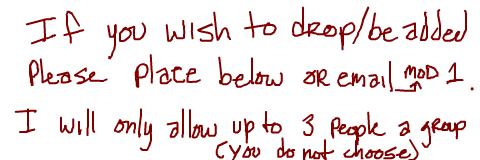 If you wish to drop/be added
Please place below or email MOD 1.
I will only allow up to 3 people a group
(you do not choose)